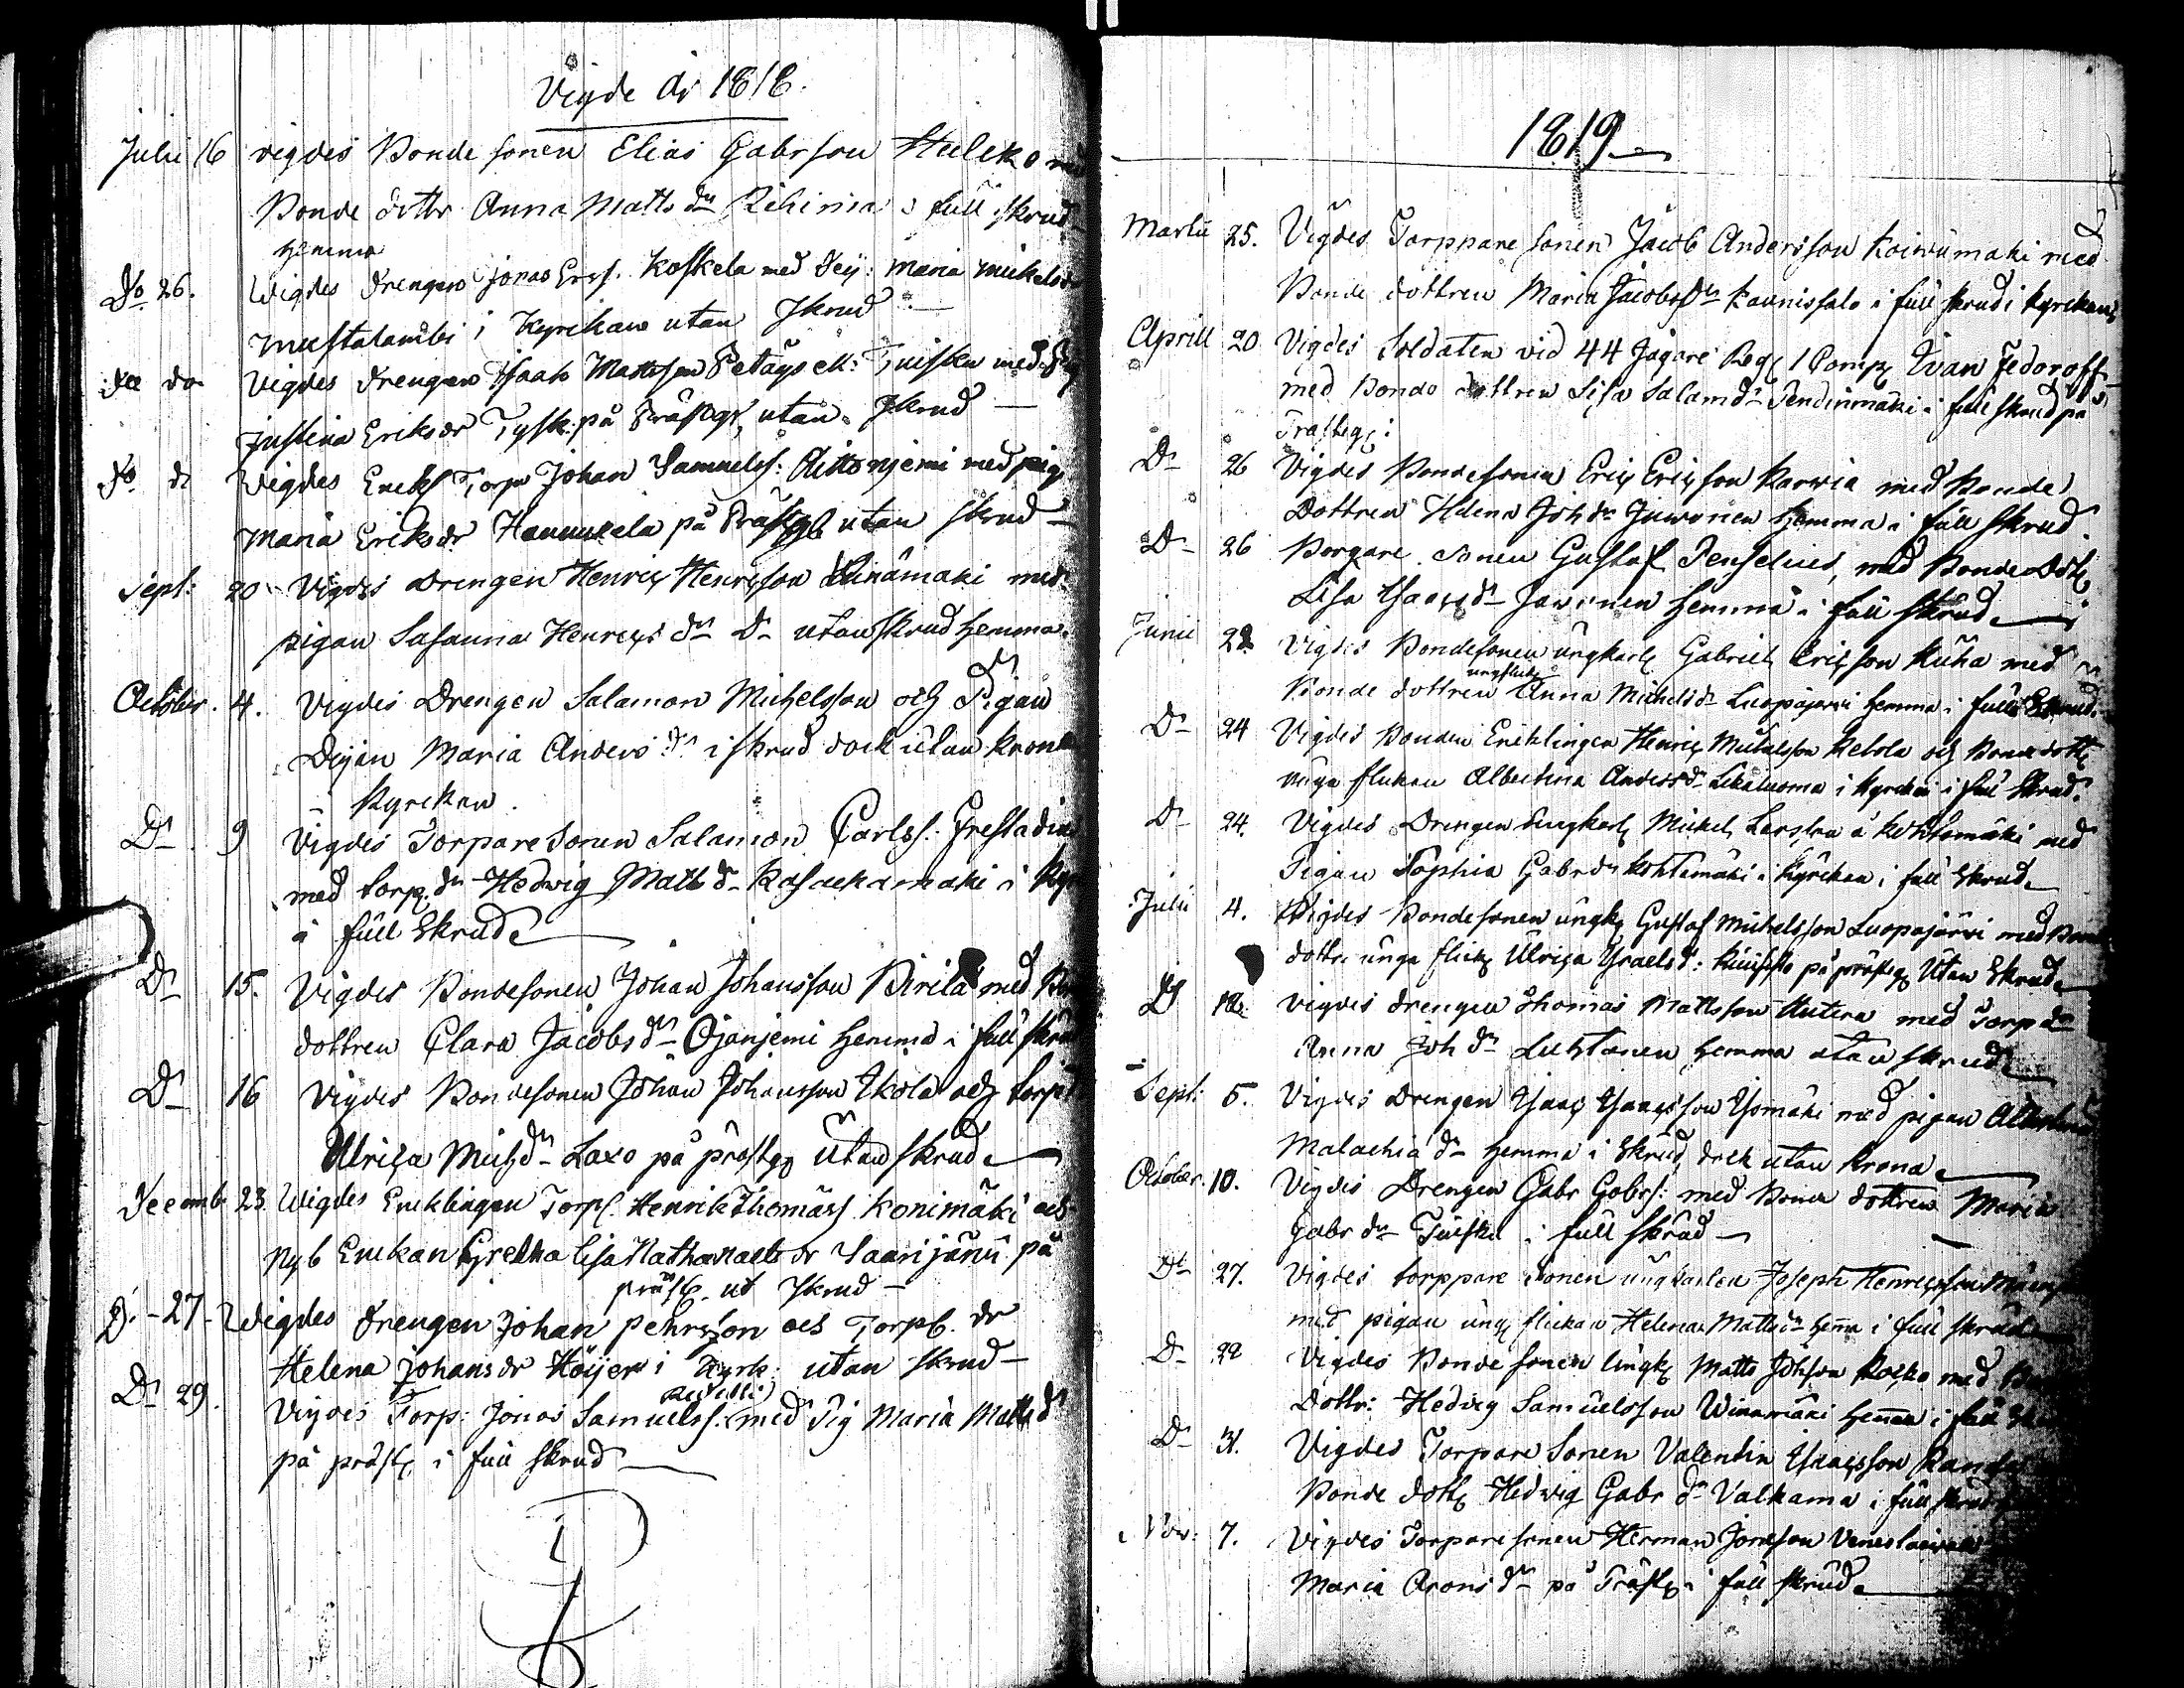 Vigde år 1818.
Juli 16 vigdes Bonde sonen Elias Gabrsson Hulcko med
Bonde dottr Anna Matts dr Riihima i full skrud
hemma
Do 26. Wigdes Drengen Jonas Ers. Koskela med Pig: Maria Mickelsdr
Mustalambi i Kyrckan utan Skrud
do do Vigdes drengen Isaak Mattsson Petäys ell: Tuisku med Pig
Justina Eriksdr Tysk: på Prästg: utan Skrud —
do do Wigdes Enckl Torp: Johan Samuelss: Aittonjemi med pig
Maria Eriksdr Hannukela på Prästgl utan skrud —
Sept: 20 Vigdes Drengen Henric Henricsson Winämaki med
pigan Susanna Henrics dr Do utan skrud hemma.
October. 4. Vigdes Drengen Salamon Michelsson och Pigan
Deijan Maria Anders dr i skrud dock utan krona
Kyrckan.
Do 9 Vigdes Torpare sonen Salamon Carlss: Frestadius
med torp: dr Hedwig Matts dr Kasackamaki i Kyr
i full Skrud
Do 15. Vigdes Bondesonen Johan Johansson Pirilä med Bon
dottren Clara Jacobs dr Ojanjemi hemma i full skrud
Do 16 Vigdes Bondesonen Johan Johansson Ikola och torp
Ulrica Mich dr Laxo på prästg utan skrud
Decemb 23 Wigdes Encklingen Torp. Henrik Thomass Konimäki och
Nyb Enckan Gretha Lisa Nathanaelsdr Saarijärvi på
präst. ut skrud —
D. - 27. Wigdes drengen Johan Pehrsson och Torp. dr
Helena Johansdr Höijer i Kyrk: utan skrud —
Do 29. Vigdes Torp: Jonas Samuelss. med Pig Maria Matts dr
på präst: i full skrud

1819
Martii 25. Vigdes Torppare sonen Jacob Andersson Koiwumaki med
Bonde dottren Maria Jacobs dr Kaunissalo i full skrud i kyrckan
Aprill 20 Vigdes Soldaten vid 44 Jägare Reg: 1 Comp: Ivan Fedoroff
med Bonde dottren Lisa Salam dr Pendinmäki i full skrud på
Prästg:
Do 26 Vigdes Bondesonen Eric Ericsson Karvia med Bonde
Dottren Helena Joh dr Juwonen hemma i full skrud.
Do 26 Borgare sonen Gustaf Penselius, med Bonde Dottr
Lisa Isaacs dr Juwonen hemma i full skrud
Junii 22. Vigdes Bondesonen ungkarl Gabriel Ericsson Kuha med
ungflick
Bonde dottren Anna Michels dr Luopajervi hemma i full Skrud.
Do 24 Vigdes Bonden Encklingen Henric Michelsson Ketola och Bonde dottr
unga flickan Albertina Anders dr Likaluoma i Kyrckan i full skrud.
Do 24. Vigdes Drengen Ungkarl Mickel Larsson å Kohtamäki med
Pigan Sophia Gabr dr Kohtamäki i Kyrckan i full Skrud
Juli 4. Vigdes Bondesonen ungk: Gustaf Michelsson Luopajärvi med Bonde
dottr. unga flick: Ulrica Israels d: Kuusisto på prästg: utan Skrud
Do 18. Vigdes drengen Thomas Mattsson Hutera med Torp dr
Anna Joh dr Luhtanen hemma utan skrud
Sept: 5. Vigdes Drengen Isaac Isaacsson Isomäki med pigan Albertina
Malachia dr hemma i Skrud dock utan krona
October. 10. Vigdes Drengen Gabr Gabrs: med Bonde dottren Maria
Gabr dr Tuisku i full skrud —
Do 27. Vigdes torppare sonen ungkarlen Joseph Henricsson
med pigan ung flickan Helena Matts dr hemma i full skrud
Do 29 Vigdes Bonde sonen Ungk: Matts Johsson Kocko med
Dottr: Hedvig Samuelsson Winnamäki hemma i full
Do 31. Vigdes Torpare sonen Valentin Isaacsson
Bonde dott: Hedwig Gabr dr Valkama i full skrud
Nov: 7. Vigdes Torpare sonen Herman Jonsson
Maria Arons dr på Prästg: i full skrud